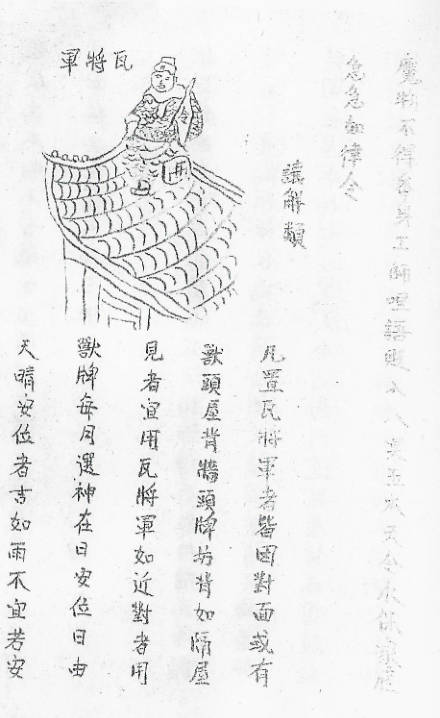 魔物不得番身工師哩語
急急如律令
禳解類
瓦將軍
凡置瓦將軍者皆因對面或有
獸頭屋脊牆頭牌坊脊如隔屋
見者宜用瓦將軍如近對者用
獸牌每月選神在日安位日由
天晴安位者吉如雨不宜若安